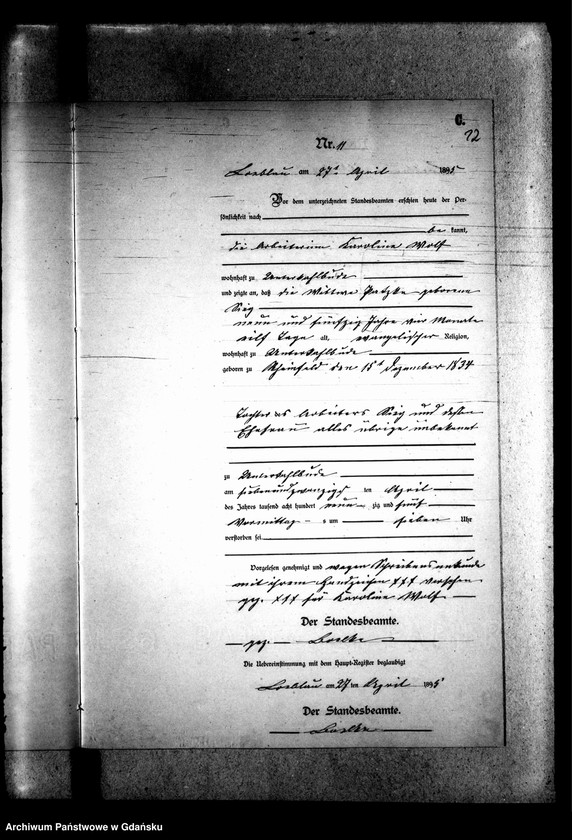 C.
12
Nr. 11
Loeblau am 27t April 1895
Vor dem unterzeichneten Standesbeamten erschien heute der Per-
sönlichkeit nach
be kannt,
die Arbeiterin Karoline Wolf
wohnhaft zu Unterkahlbude
und zeigte an, daß die Wittwe Patzke geborene
Sieg
neun und fünfzig Jahre vier Monate
eilf Tage alt, evangelischer Religion,
wohnhaft zu Unterkahlbude
geboren zu Rheinfeld den 15t Dezember 1834
Tochter des Arbeiters Sieg und dessen
Ehefrau alles übrige unbekannt
zu Unterkahlbude
am siebenundzwanzigs ten April
des Jahres tausend acht hundert neun zig und fünf
Vormittag s um sieben Uhr
verstorben sei
Vorgelesen genehmigt und wegen Schreibensunkunde
mit ihrem Handzeichen +++ versehen
gez. +++ für Karoline Wolf
Der Standesbeamte.
gez.
Die Uebereinstimmung mit dem Haupt-Register beglaubigt
Loeblau am 27 ten April 1895
Der Standesbeamte.
Archiwum Państwowe w Gdańsku